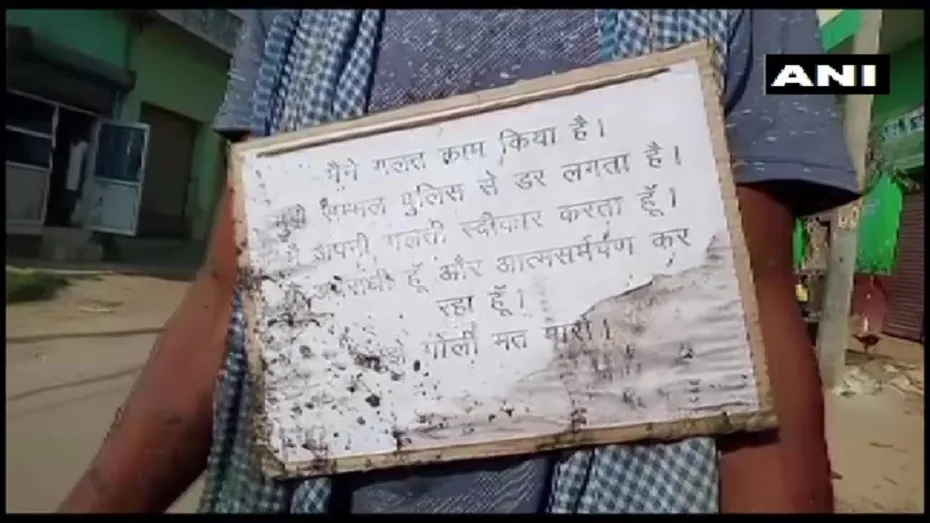 ANI
मैने गलत काम किया है।
सम्भल पुलिस से डर लगता है।
अपनी गलती स्वीकार करता हूँ।
हूँ और आत्मसर्मपण कर
रहा हूँ।
गोली मत मारो।